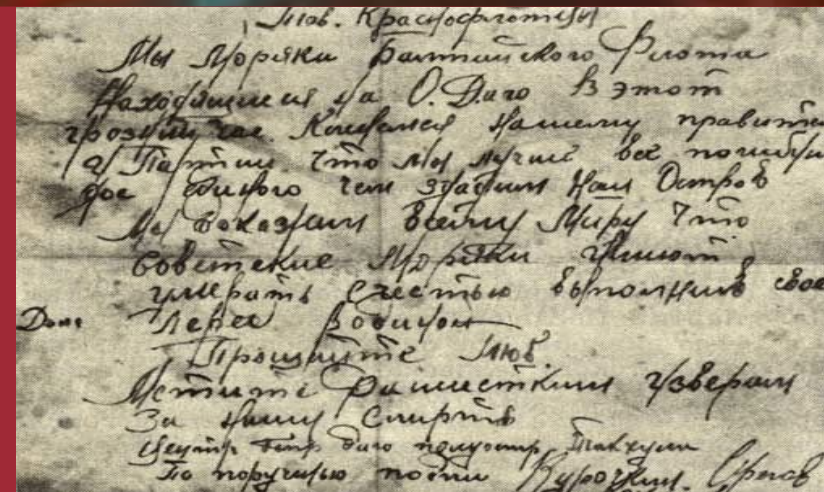 Тов. Краснофлотцы
Мы Моряки Балтийского Флота
Находящиеся на О. Даго В этот
грозный час Клянемся Нашему правите
и Партии что мы лучше все погибн
до единого чем здадим Наш Остров
Мы докажем всему Миру что
Советские Моряки умеют
умерать с честью выполнив свое
Долг Перед Родиной
Прощайте Тов.
Мстите Фашистким извергам
За нашу Смерть
По поручению подпи Курочкин.